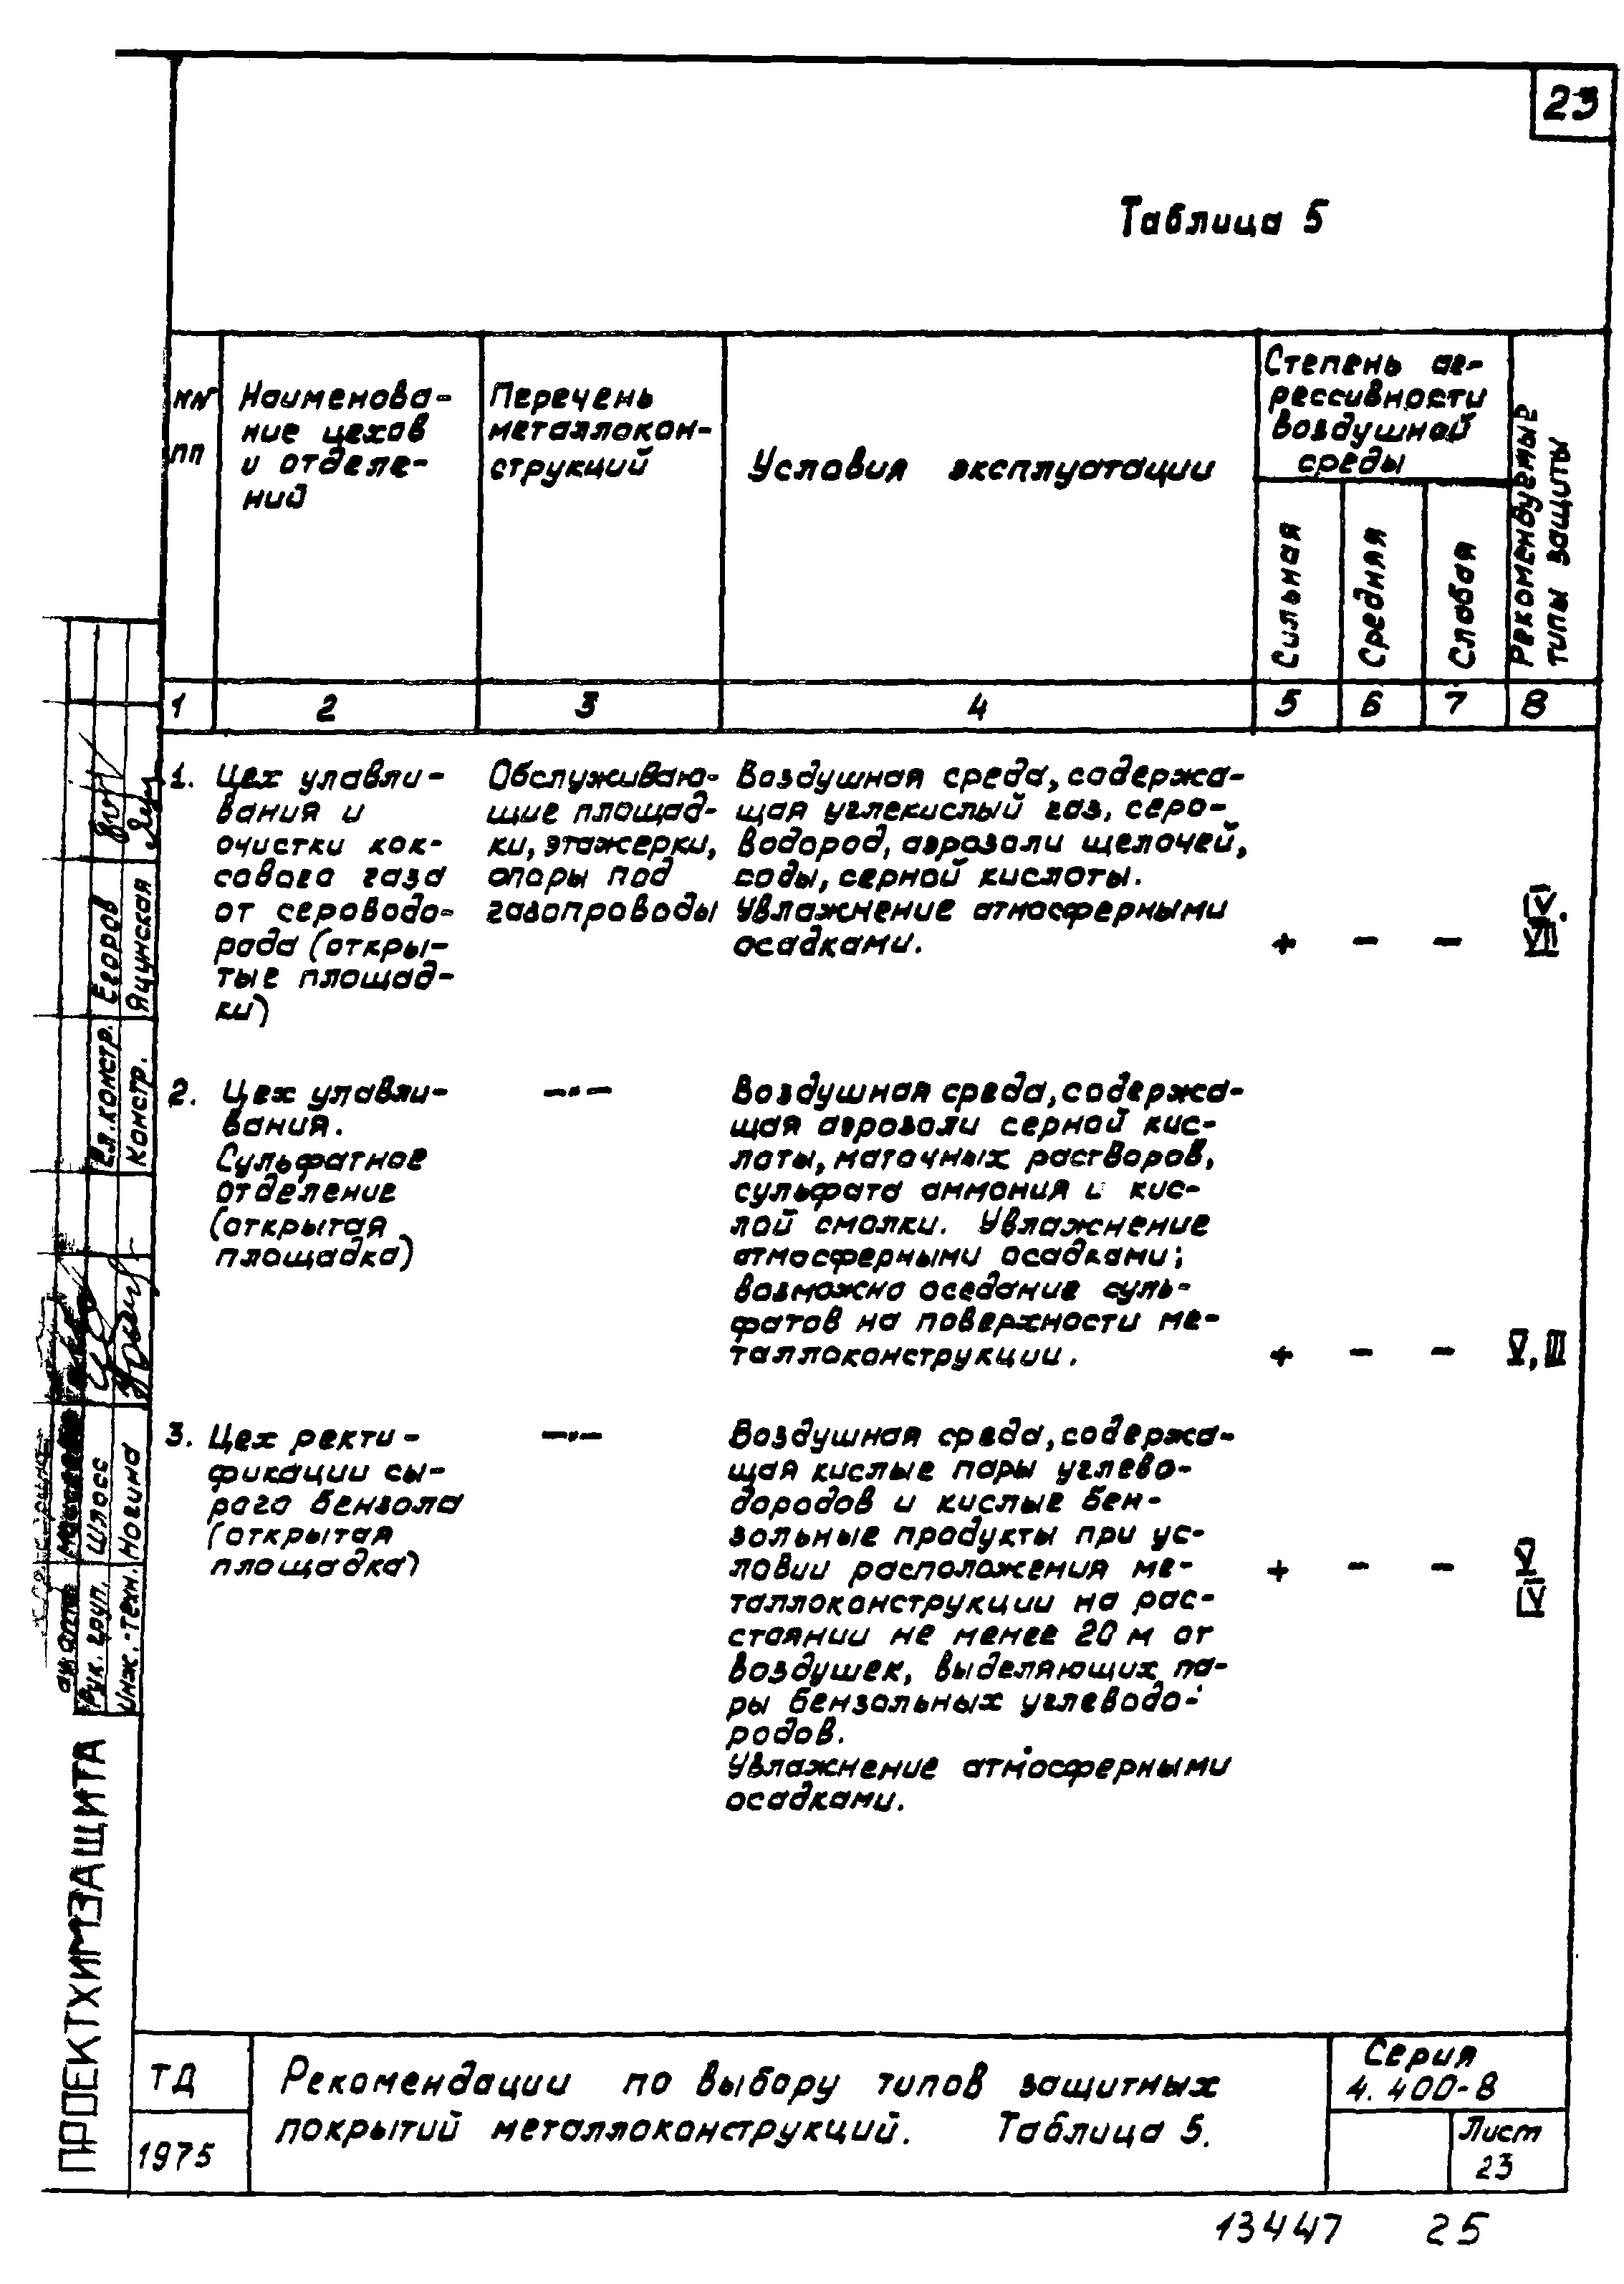 23
Таблица 5
NN
пп
Наименова-
ние цехов
и отделе-
ний
Перечень
металлокон-
струкций
Условия эксплуатации
Степень аг-
рессивности
воздушной
среды
Сильная
Средняя
Слабая
Рекомендуемые
типы защиты
1 2 3 4 5 6 7 8
1. Цех улавли-
вания и
очистки кок-
сового газа
от сероводо-
рода (откры-
тые площад-
ки)
Обслуживаю-
щие площад-
ки, этажерки,
опоры под
газопроводы
Воздушная среда, содержа-
щая углекислый газ, серо-
водород, аэрозоли щелочей,
соды, серной кислоты.
Увлажнение атмосферными
осадками.
+ - -
IV.
VII
2. Цех улавли-
вания.
Сульфатное
отделение
(открытая
площадка)
—·—
Воздушная среда, содержа-
щая аэрозоли серной кис-
лоты, маточных растворов,
сульфата аммония и кис-
лой смолки. Увлажнение
атмосферными осадками;
возможно оседание суль-
фатов на поверхности ме-
таллоконструкции.
+ - - V, III
3. Цех ректи-
фикации сы-
рого бензола
(открытая
площадка)
—·—
Воздушная среда, содержа-
щая кислые пары углево-
дородов и кислые бен-
зольные продукты при ус-
ловии расположения ме-
таллоконструкции на рас-
стоянии не менее 20 м от
воздушек, выделяющих па-
ры бензольных углеводо-
родов.
Увлажнение атмосферными
осадками.
+ - -
V
IV
Гл. констр. Егоров
Констр. Яцунская
Рук. груп. Шлосс
Инж.-техн. Ногина
ПРОЕКТХИМЗАЩИТА
ТД
1975
Рекомендации по выбору типов защитных
покрытий металлоконструкций. Таблица 5.
Серия
4.400-8
Лист
23
13447 25